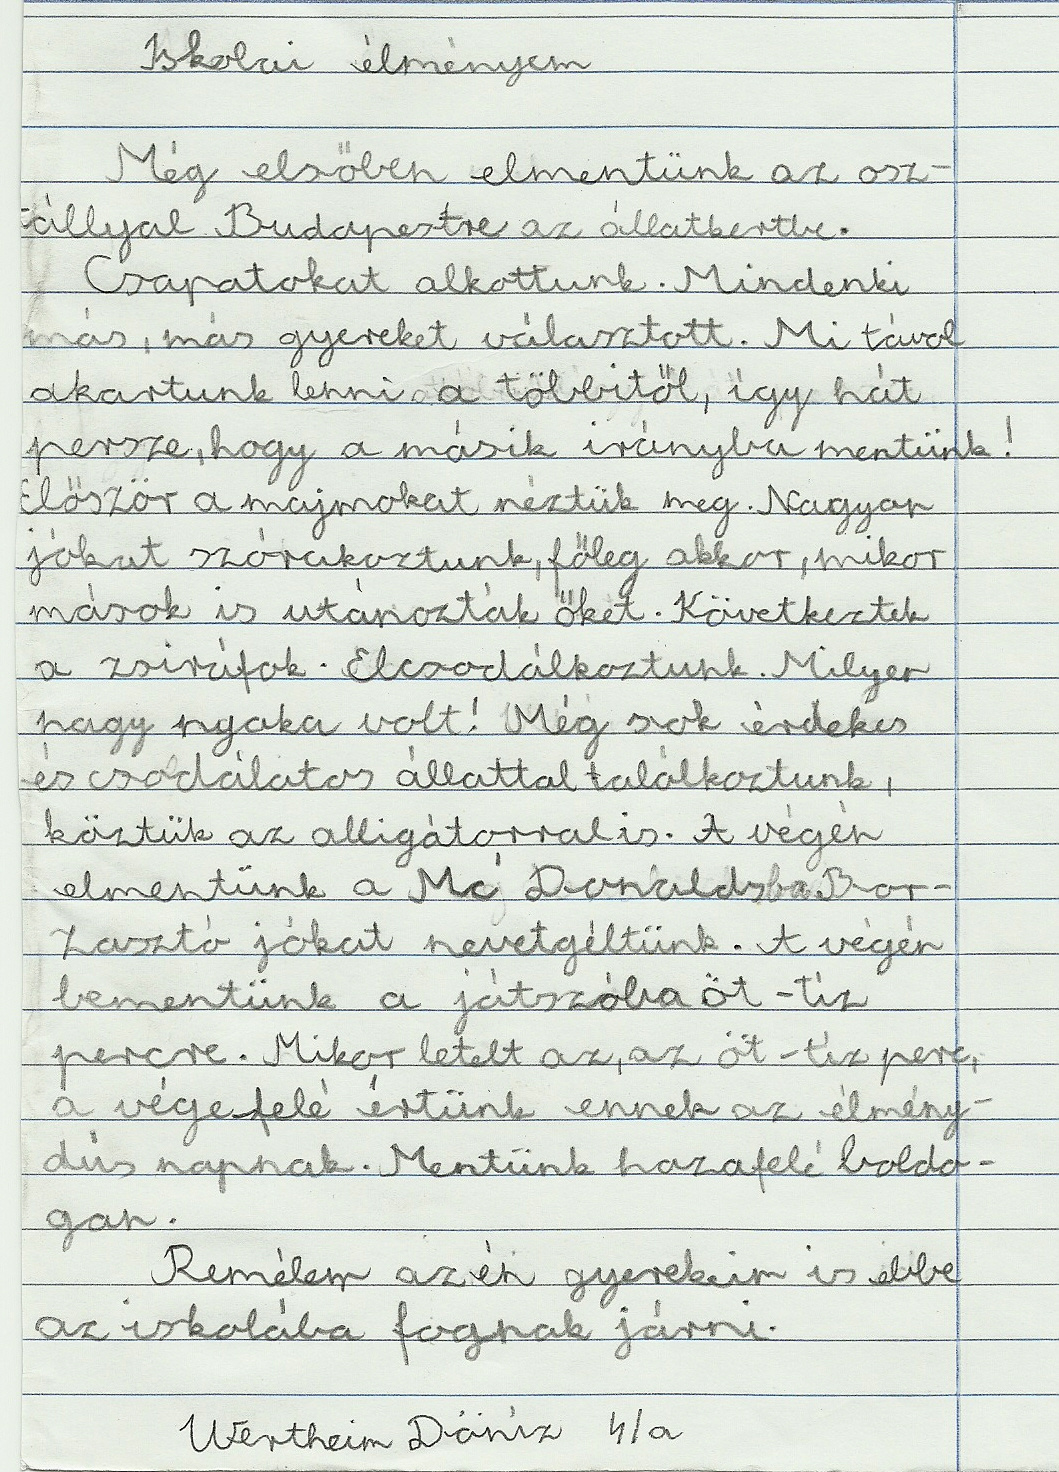 Iskolai élményem
Még elsőben elmentünk az osz-
tállyal Budapestre az állatkertbe.
Csapatokat alkottunk. Mindenki
más, más gyereket választott. Mi távol
akartunk lenni a többitől, így hát
persze, hogy a másik irányba mentünk!
Először a majmokat néztük meg. Nagyon
jókat szórakoztunk, főleg akkor, mikor
mások is utánozták őket. Következtek
a zsiráfok. Elcsodálkoztunk. Milyen
nagy nyaka volt! Még sok érdekes
és csodálatos állattal találkoztunk,
köztük az alligátorral is. A végén
elmentünk a Mc Donaldsba Bor-
zasztó jókat nevetgéltünk. A végén
bementünk a játszóba öt-tíz
percre. Mikor letelt az, az öt-tíz perc,
a vége felé értünk ennek az élmény-
dús napnak. Mentünk hazafelé boldo-
gan.
Remélem az én gyerekeim is ebbe
az iskolába fognak járni.
Wertheim Döníz 4/a